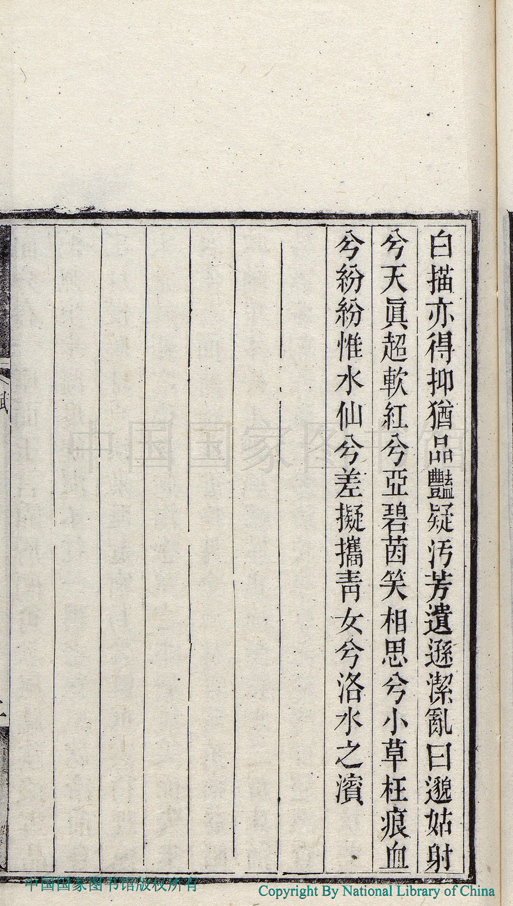 白描亦得抑猶品豔疑汚芳遺遜潔亂曰邈姑射
兮天眞超軟紅兮亞碧茵笑相思兮小草枉痕血
兮紛紛惟水仙兮差擬攜靑女兮洛水之濱
賦
中国国家图书馆
中国国家图书馆版权所有
Copyright By National Library of China